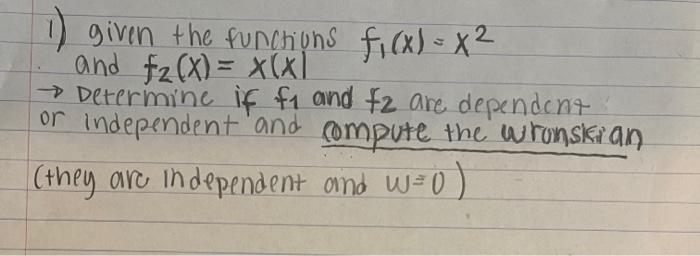 1) given the functions f₁(x) = x²
and f₂(x) = x|x|
→ Determine if f₁ and f₂ are dependent
or independent and compute the wronskian
(they are independent and w≡0)